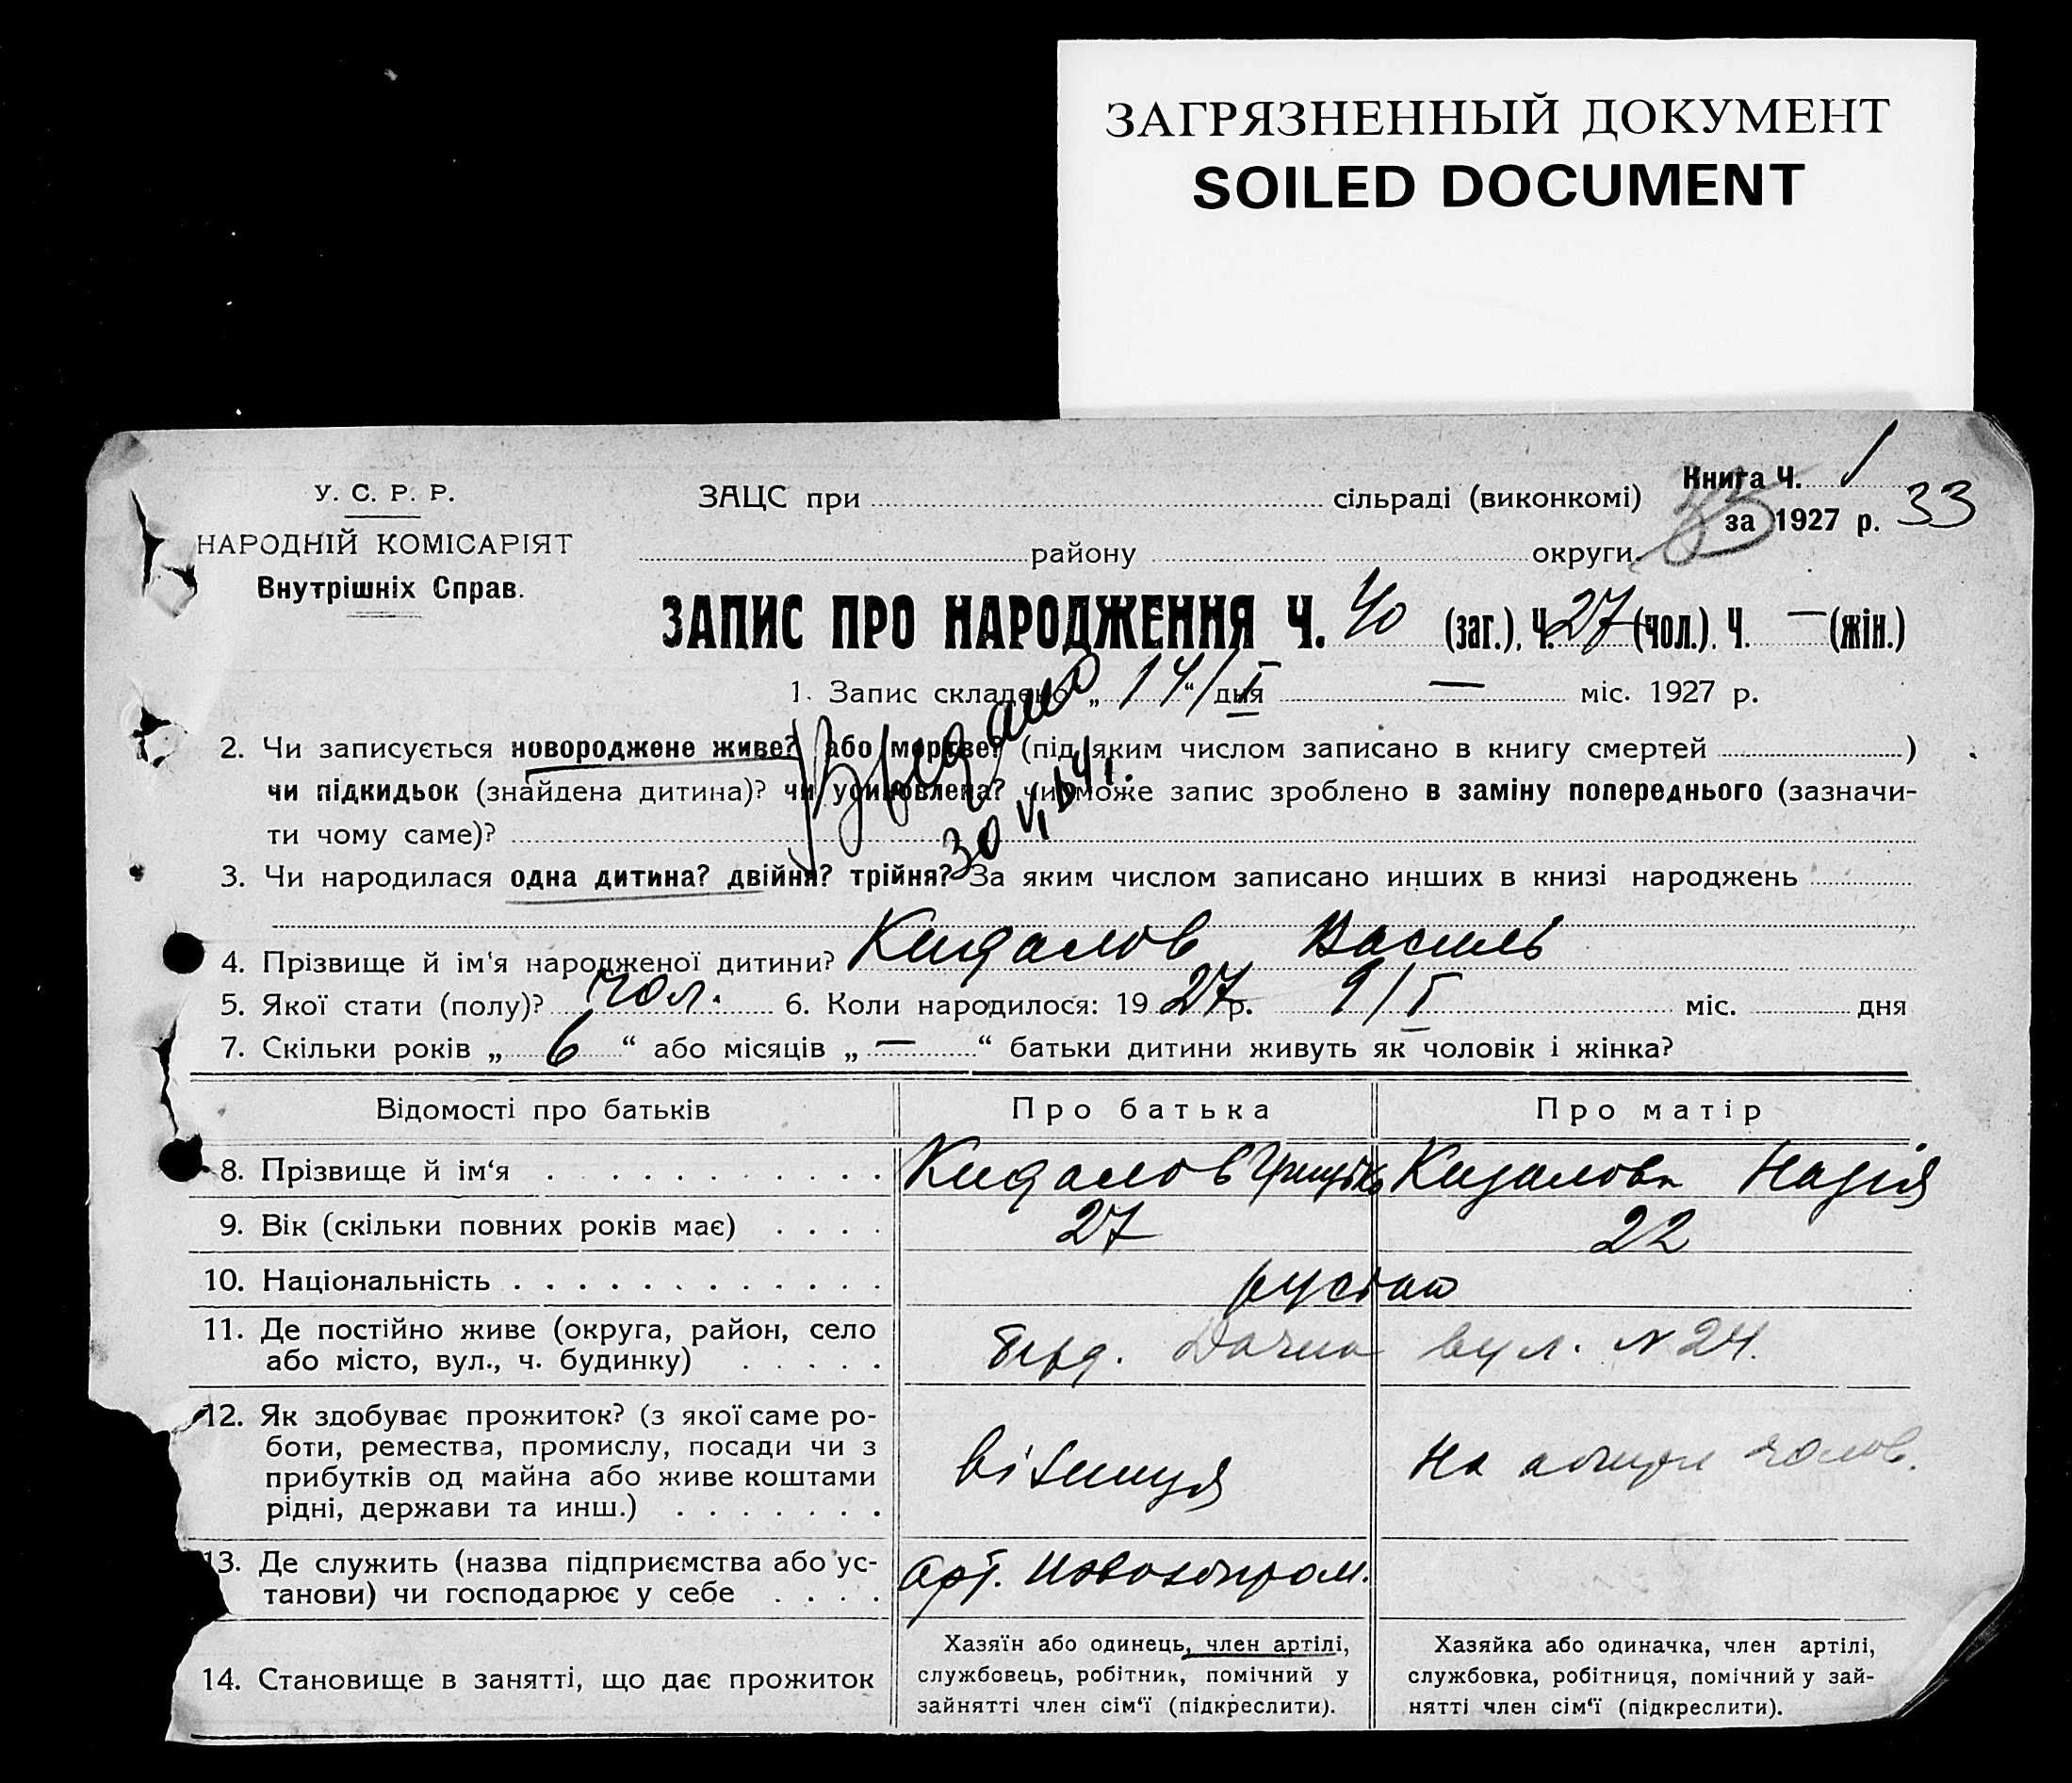 ЗАГРЯЗНЕННЫЙ ДОКУМЕНТ
SOILED DOCUMENT
У. С. Р. Р.
НАРОДНІЙ КОМІСАРІЯТ
Внутрішніх Справ.
ЗАЦС при сільраді (виконкомі)
району округи
Книга Ч. 1
за 1927 р. 33
ЗАПИС ПРО НАРОДЖЕННЯ Ч. 40 (заг.), Ч. 27 (чол.). Ч. — (жін.)
1. Запис складено „ 14/I “ дня — міс. 1927 р.
2. Чи записується новороджене живе? або мертве? (під яким числом записано в книгу смертей )
чи підкидьок (знайдена дитина)? чи усиновлена? чи може запис зроблено в заміну попереднього (зазначи-
ти чому саме)?
3. Чи народилася одна дитина? двійня? трійня? За яким числом записано инших в книзі народжень
4. Прізвище й ім'я народженої дитини? Кидалов Василь
5. Якої стати (полу)? чол. 6. Коли народилося: 1927 р. 9/I міс. дня
7. Скільки років „ 6 “ або місяців „ — “ батьки дитини живуть як чоловік і жінка?
Відомості про батьків Про батька Про матір
8. Прізвище й ім'я Кидалов Грицько Кидалова Надія
9. Вік (скільки повних років має) 27 22
10. Національність
11. Де постійно живе (округа, район, село
або місто, вул., ч. будинку) Берд. Дачна вул. N 24.
12. Як здобуває прожиток? (з якої саме ро-
боти, ремества, промислу, посади чи з
прибутків од майна або живе коштами
рідні, держави та инш.) На чолов.
13. Де служить (назва підприємства або ус-
танови) чи господарює у себе Арт.
14. Становище в занятті, що дає прожиток
Хазяїн або одинець, член артілі,
службовець, робітник, помічний у
зайнятті член сім'ї (підкреслити).
Хазяйка або одиначка, член артілі,
службовка, робітниця, помічний у зай-
нятті член сім'ї (підкреслити).